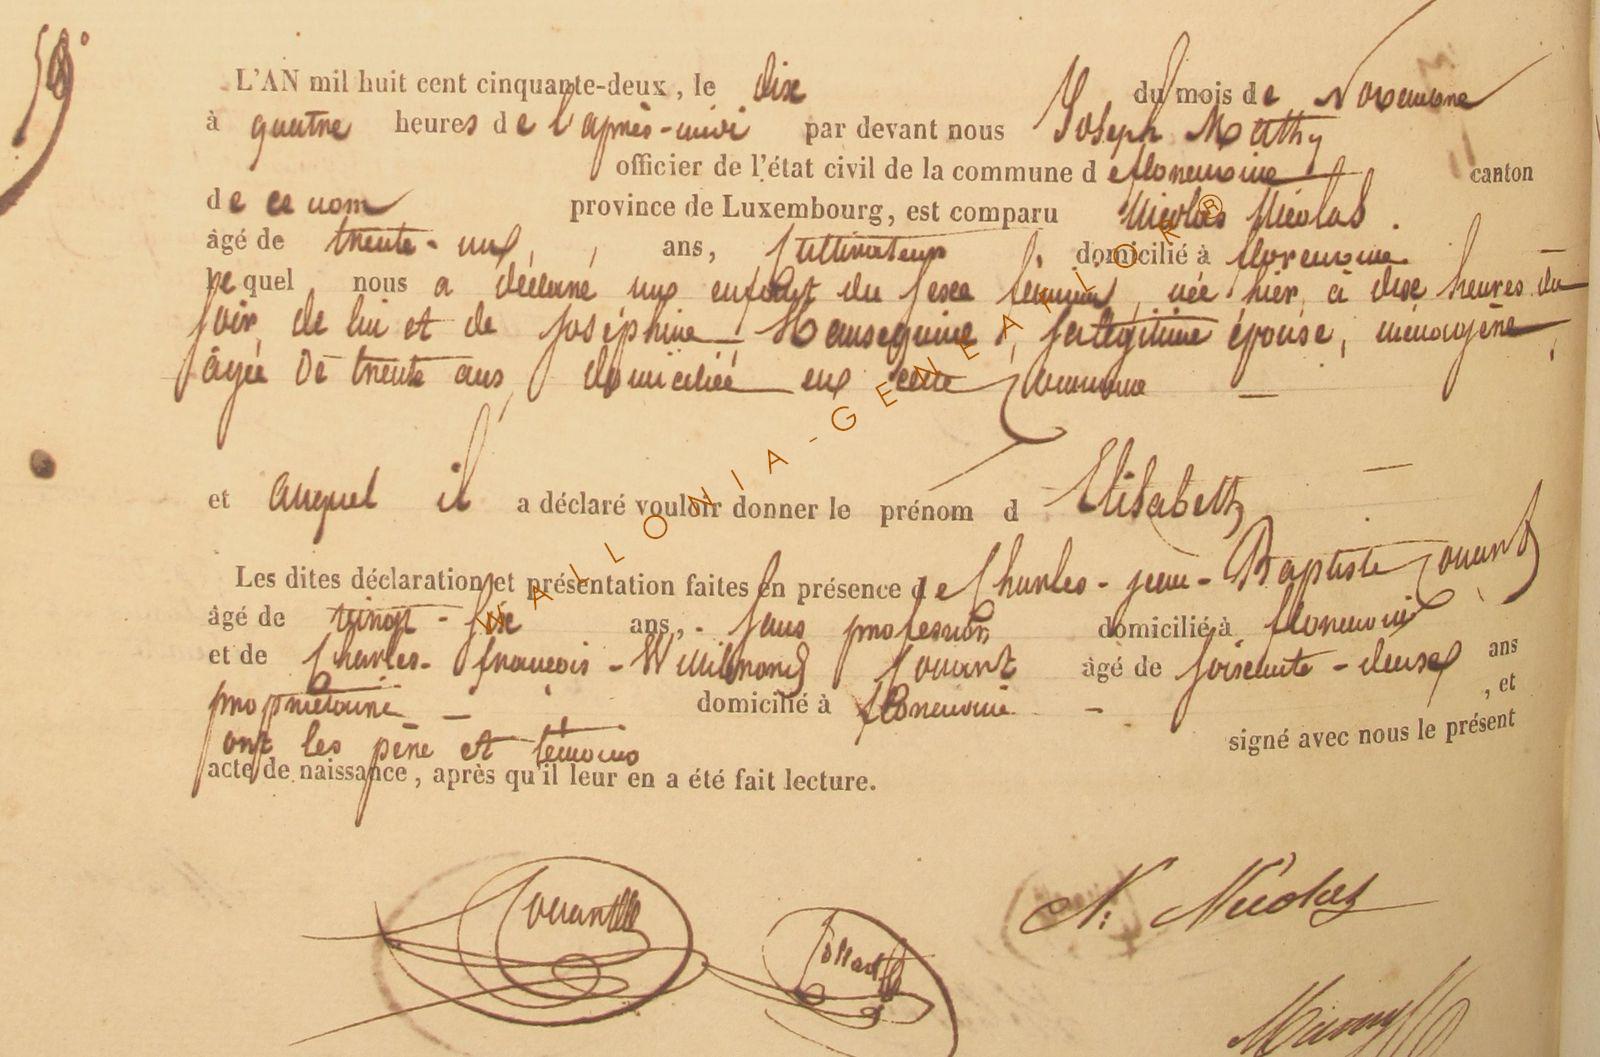 58°
L'AN mil huit cent cinquante-deux, le dix du mois de Novembre
à quatre heures de l'après-midi par devant nous Joseph Mathy
officier de l'état civil de la commune de florenville canton
de ce nom province de Luxembourg, est comparu Nicolas Nicolas.
âgé de trente-un, ans, Cultivateur domicilié à florenville
lequel nous a déclaré un enfant du sexe féminin, née hier, à dix heures du
soir, de lui et de Joséphine, sa légitime épouse, ménagère,
âgée de trente ans, domiciliée en cette Commune
et auquel il a déclaré vouloir donner le prénom d Elisabeth
Les dites déclaration et présentation faites en présence de Charles-jean-Baptiste
âgé de vingt-six ans, sans profession domicilié à florenville
et de Charles-françois- âgé de soixante-deux ans
propriétaire domicilié à florenville, et
ont les père et témoins signé avec nous le présent
acte de naissance, après qu'il leur en a été fait lecture.
N: Nicolas
WALLONIA-GENEALOR®